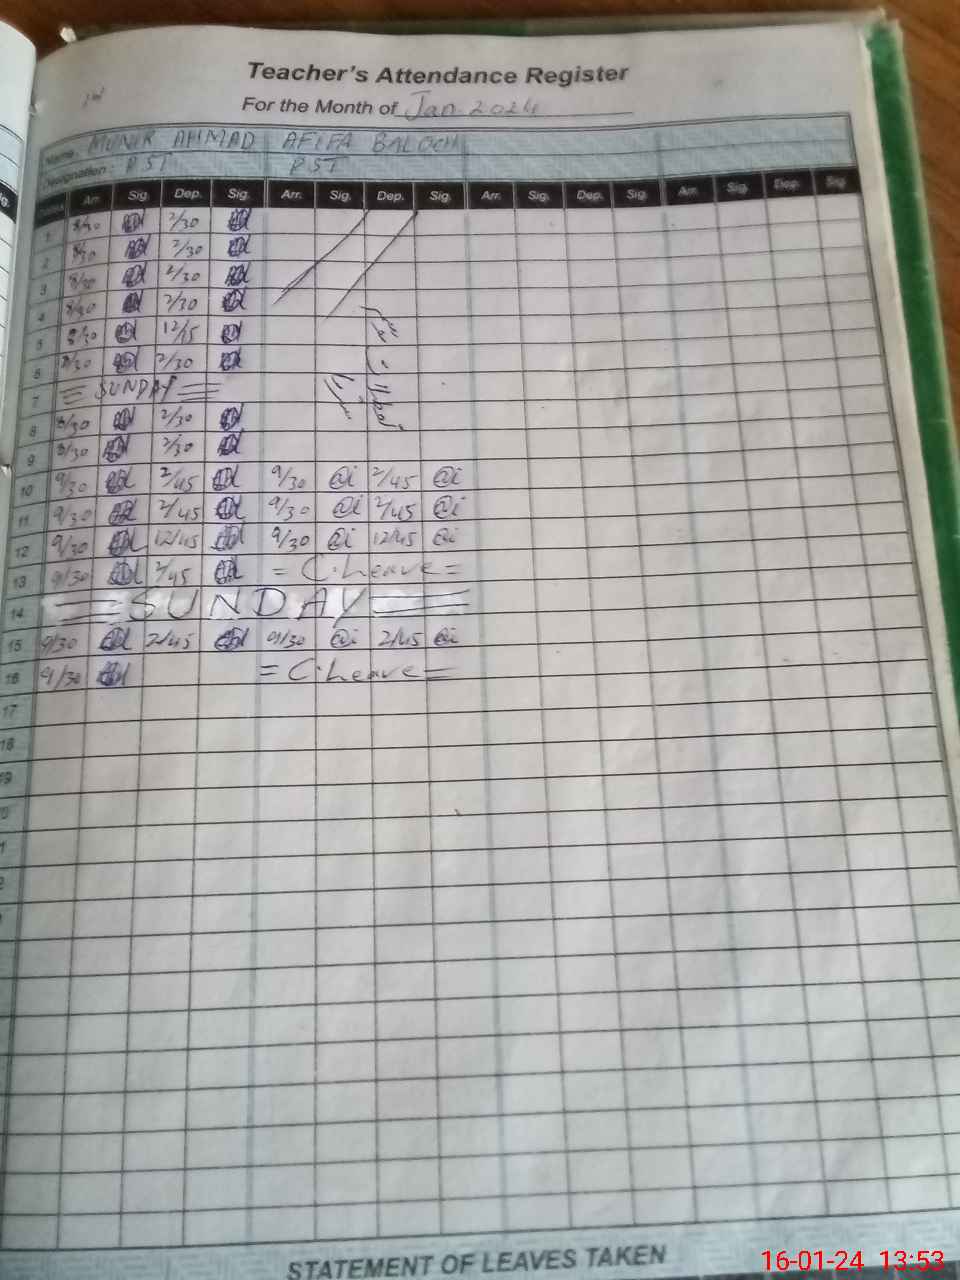 Teacher's Attendance Register
For the Month of Jan-2024
Name: MUNIR AHMAD AFIFA BALOCH
Designation: PST
Arr. Sig. Dep. Sig. Arr. Sig. Dep. Sig. Arr. Sig. Dep. Sig. Arr. Sig. Dep. Sig.
1 8/30 2/30
2 8/30 2/30
3 8/30 2/30
4 8/30 2/30
5 8/30 12/15
6 8/30 2/30
7 SUNDAY
8 8/30 2/30
9 8/30 2/30
10 9/30 2/45 9/30 @i 2/45 @i
11 9/30 2/45 9/30 @i 2/45 @i
12 9/30 12/45 9/30 @i 12/45 @i
13 9/30 2/45 = C.Leave =
14 SUNDAY
15 9/30 2/45 9/30 @i 2/45 @i
16 9/30 = C.Leave =
17
18
STATEMENT OF LEAVES TAKEN
16-01-24 13:53